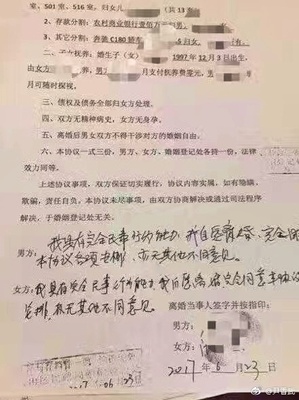 室，501 室，516 室，归女儿 （共 13 套
2、存款分割：农村商业银行壹佰万元归男
3、其它分割：奔驰 C180 轿车 归女
二、子女抚养：婚生子（女） 1997 年 12 月 3 日出生，
由女方 月支付抚养费
月可随时探视。
三、债权及债务全部归女方处理。
四、双方无精神病史，女方无身孕。
五、离婚后男女双方不得干涉对方的婚姻自由。
六、本协议一式三份，男方、女方、婚姻登记处各持一份，法律
效力同等。
上述协议事项，双方保证切实履行，协议内容实属，如有隐瞒、
欺骗，责任自负。本协议未尽事宜，由双方协商解决或通过司法程序
解决，于婚姻登记处无关。
男方：我具有完全民事行为能力，我自愿离婚，完全同意
本协议各项安排，亦无其他不同意见
女方：我具有完全民事行为能力 我自愿离婚完全同意本协议
安排，亦无其他不同意见
离婚当事人签字并按指印：
男方：
女方：
2017 年 6 月 23 日
2017 06 23日